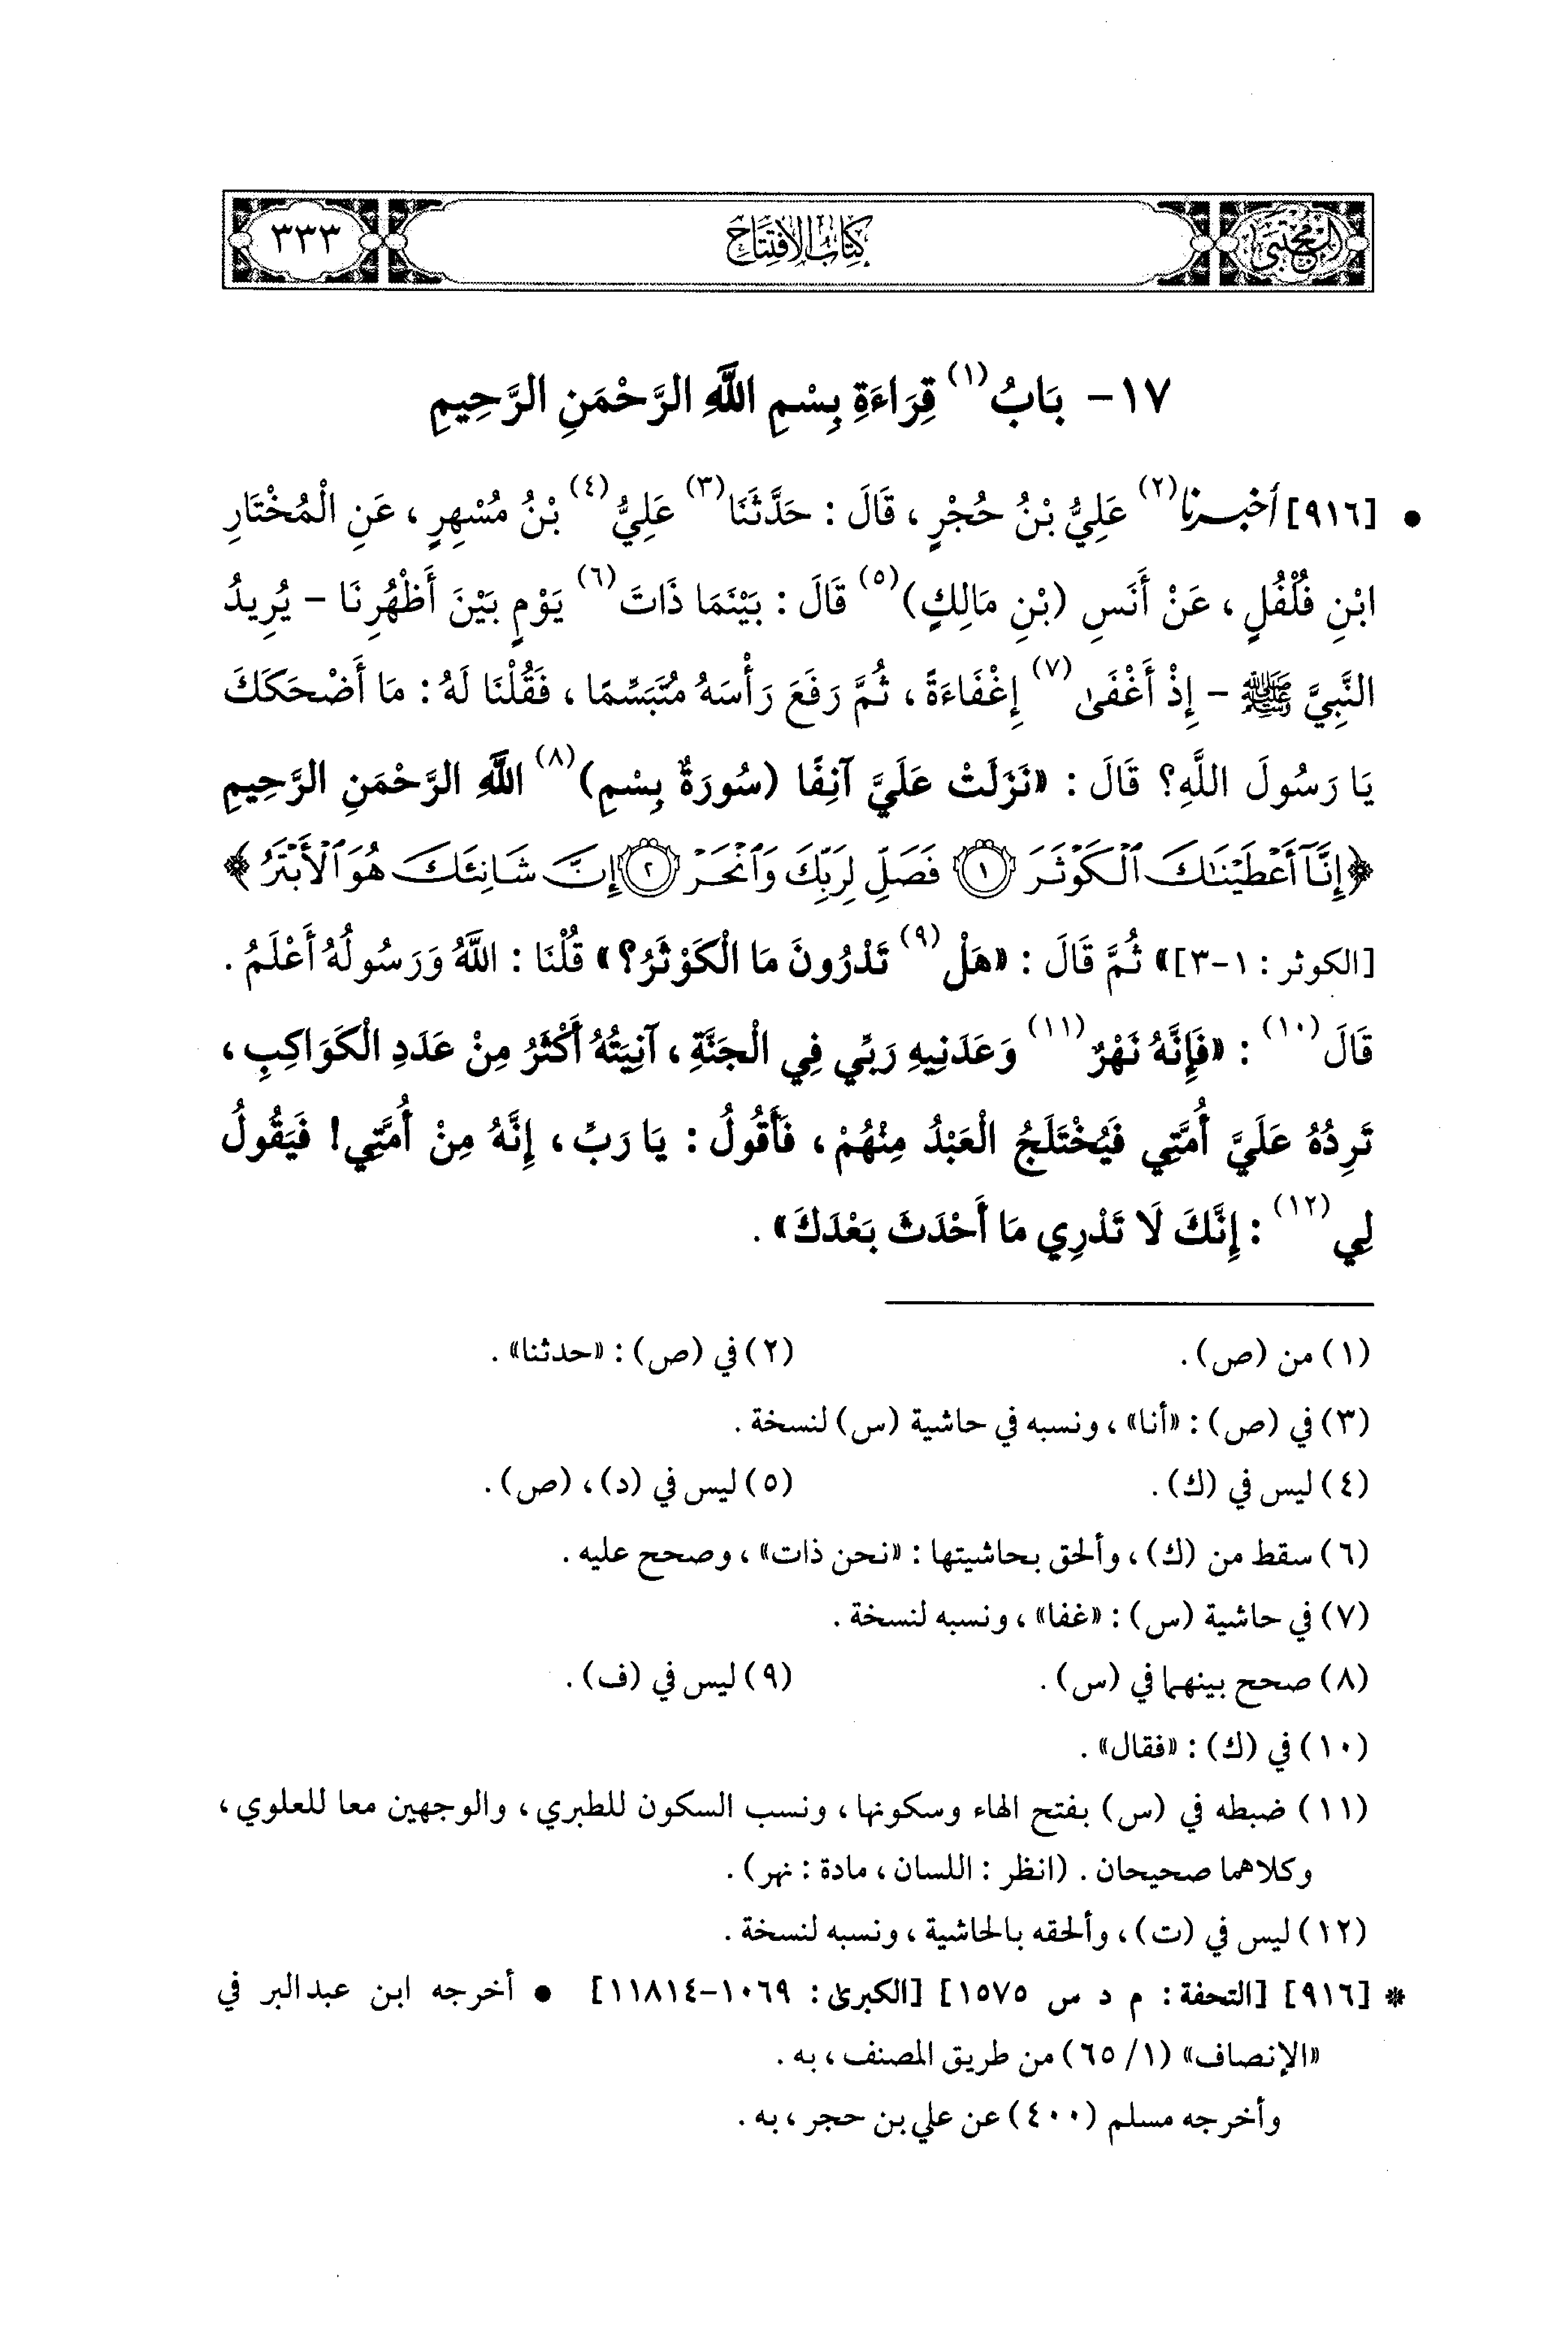 المجتبى
كتاب الافتتاح
٣٣٣
١٧- بَابُ(١) قِرَاءَةِ بِسْمِ اللَّهِ الرَّحْمَنِ الرَّحِيمِ
• [٩١٦] أخبرنا(٢) عَلِيُّ بْنُ حُجْرٍ، قَالَ: حَدَّثَنَا(٣) عَلِيُّ(٤) بْنُ مُسْهِرٍ، عَنِ الْمُخْتَارِ
ابْنِ فُلْفُلٍ، عَنْ أَنَسِ (بْنِ مَالِكٍ)(٥) قَالَ: بَيْنَمَا ذَاتَ(٦) يَوْمٍ بَيْنَ أَظْهُرِنَا - يُرِيدُ
النَّبِيَّ ﷺ - إِذْ أَغْفَىٰ(٧) إِغْفَاءَةً، ثُمَّ رَفَعَ رَأْسَهُ مُتَبَسِّمًا، فَقُلْنَا لَهُ: مَا أَضْحَكَكَ
يَا رَسُولَ اللَّهِ؟ قَالَ: «نَزَلَتْ عَلَيَّ آنِفًا (سُورَةٌ بِسْمِ)(٨) اللَّهِ الرَّحْمَنِ الرَّحِيمِ
﴿إِنَّآ أَعْطَيْنَٰكَ ٱلْكَوْثَرَ ۝١ فَصَلِّ لِرَبِّكَ وَٱنْحَرْ ۝٢ إِنَّ شَانِئَكَ هُوَ ٱلْأَبْتَرُ﴾
[الكوثر: ١-٣]» ثُمَّ قَالَ: «هَلْ(٩) تَدْرُونَ مَا الْكَوْثَرُ؟» قُلْنَا: اللَّهُ وَرَسُولُهُ أَعْلَمُ.
قَالَ(١٠): «فَإِنَّهُ نَهْرٌ(١١) وَعَدَنِيهِ رَبِّي فِي الْجَنَّةِ، آنِيَتُهُ أَكْثَرُ مِنْ عَدَدِ الْكَوَاكِبِ،
تَرِدُهُ عَلَيَّ أُمَّتِي فَيُخْتَلَجُ الْعَبْدُ مِنْهُمْ، فَأَقُولُ: يَا رَبِّ، إِنَّهُ مِنْ أُمَّتِي! فَيَقُولُ
لِي(١٢): إِنَّكَ لَا تَدْرِي مَا أَحْدَثَ بَعْدَكَ».
(١) من (ص). (٢) في (ص): «حدثنا».
(٣) في (ص): «أنا»، ونسبه في حاشية (س) لنسخة.
(٤) ليس في (ك). (٥) ليس في (د)، (ص).
(٦) سقط من (ك)، وألحق بحاشيتها: «نحن ذات»، وصحح عليه.
(٧) في حاشية (س): «غفا»، ونسبه لنسخة.
(٨) صحح بينهما في (س). (٩) ليس في (ف).
(١٠) في (ك): «فقال».
(١١) ضبطه في (س) بفتح الهاء وسكونها، ونسب السكون للطبري، والوجهين معا للعلوي،
وكلاهما صحيحان. (انظر: اللسان، مادة: نهر).
(١٢) ليس في (ت)، وألحقه بالحاشية، ونسبه لنسخة.
* [٩١٦] [التحفة: م د س ١٥٧٥] [الكبرىٰ: ١٠٦٩-١١٨١٤] • أخرجه ابن عبدالبر في
«الإنصاف» (١/ ٦٥) من طريق المصنف، به.
وأخرجه مسلم (٤٠٠) عن علي بن حجر، به.